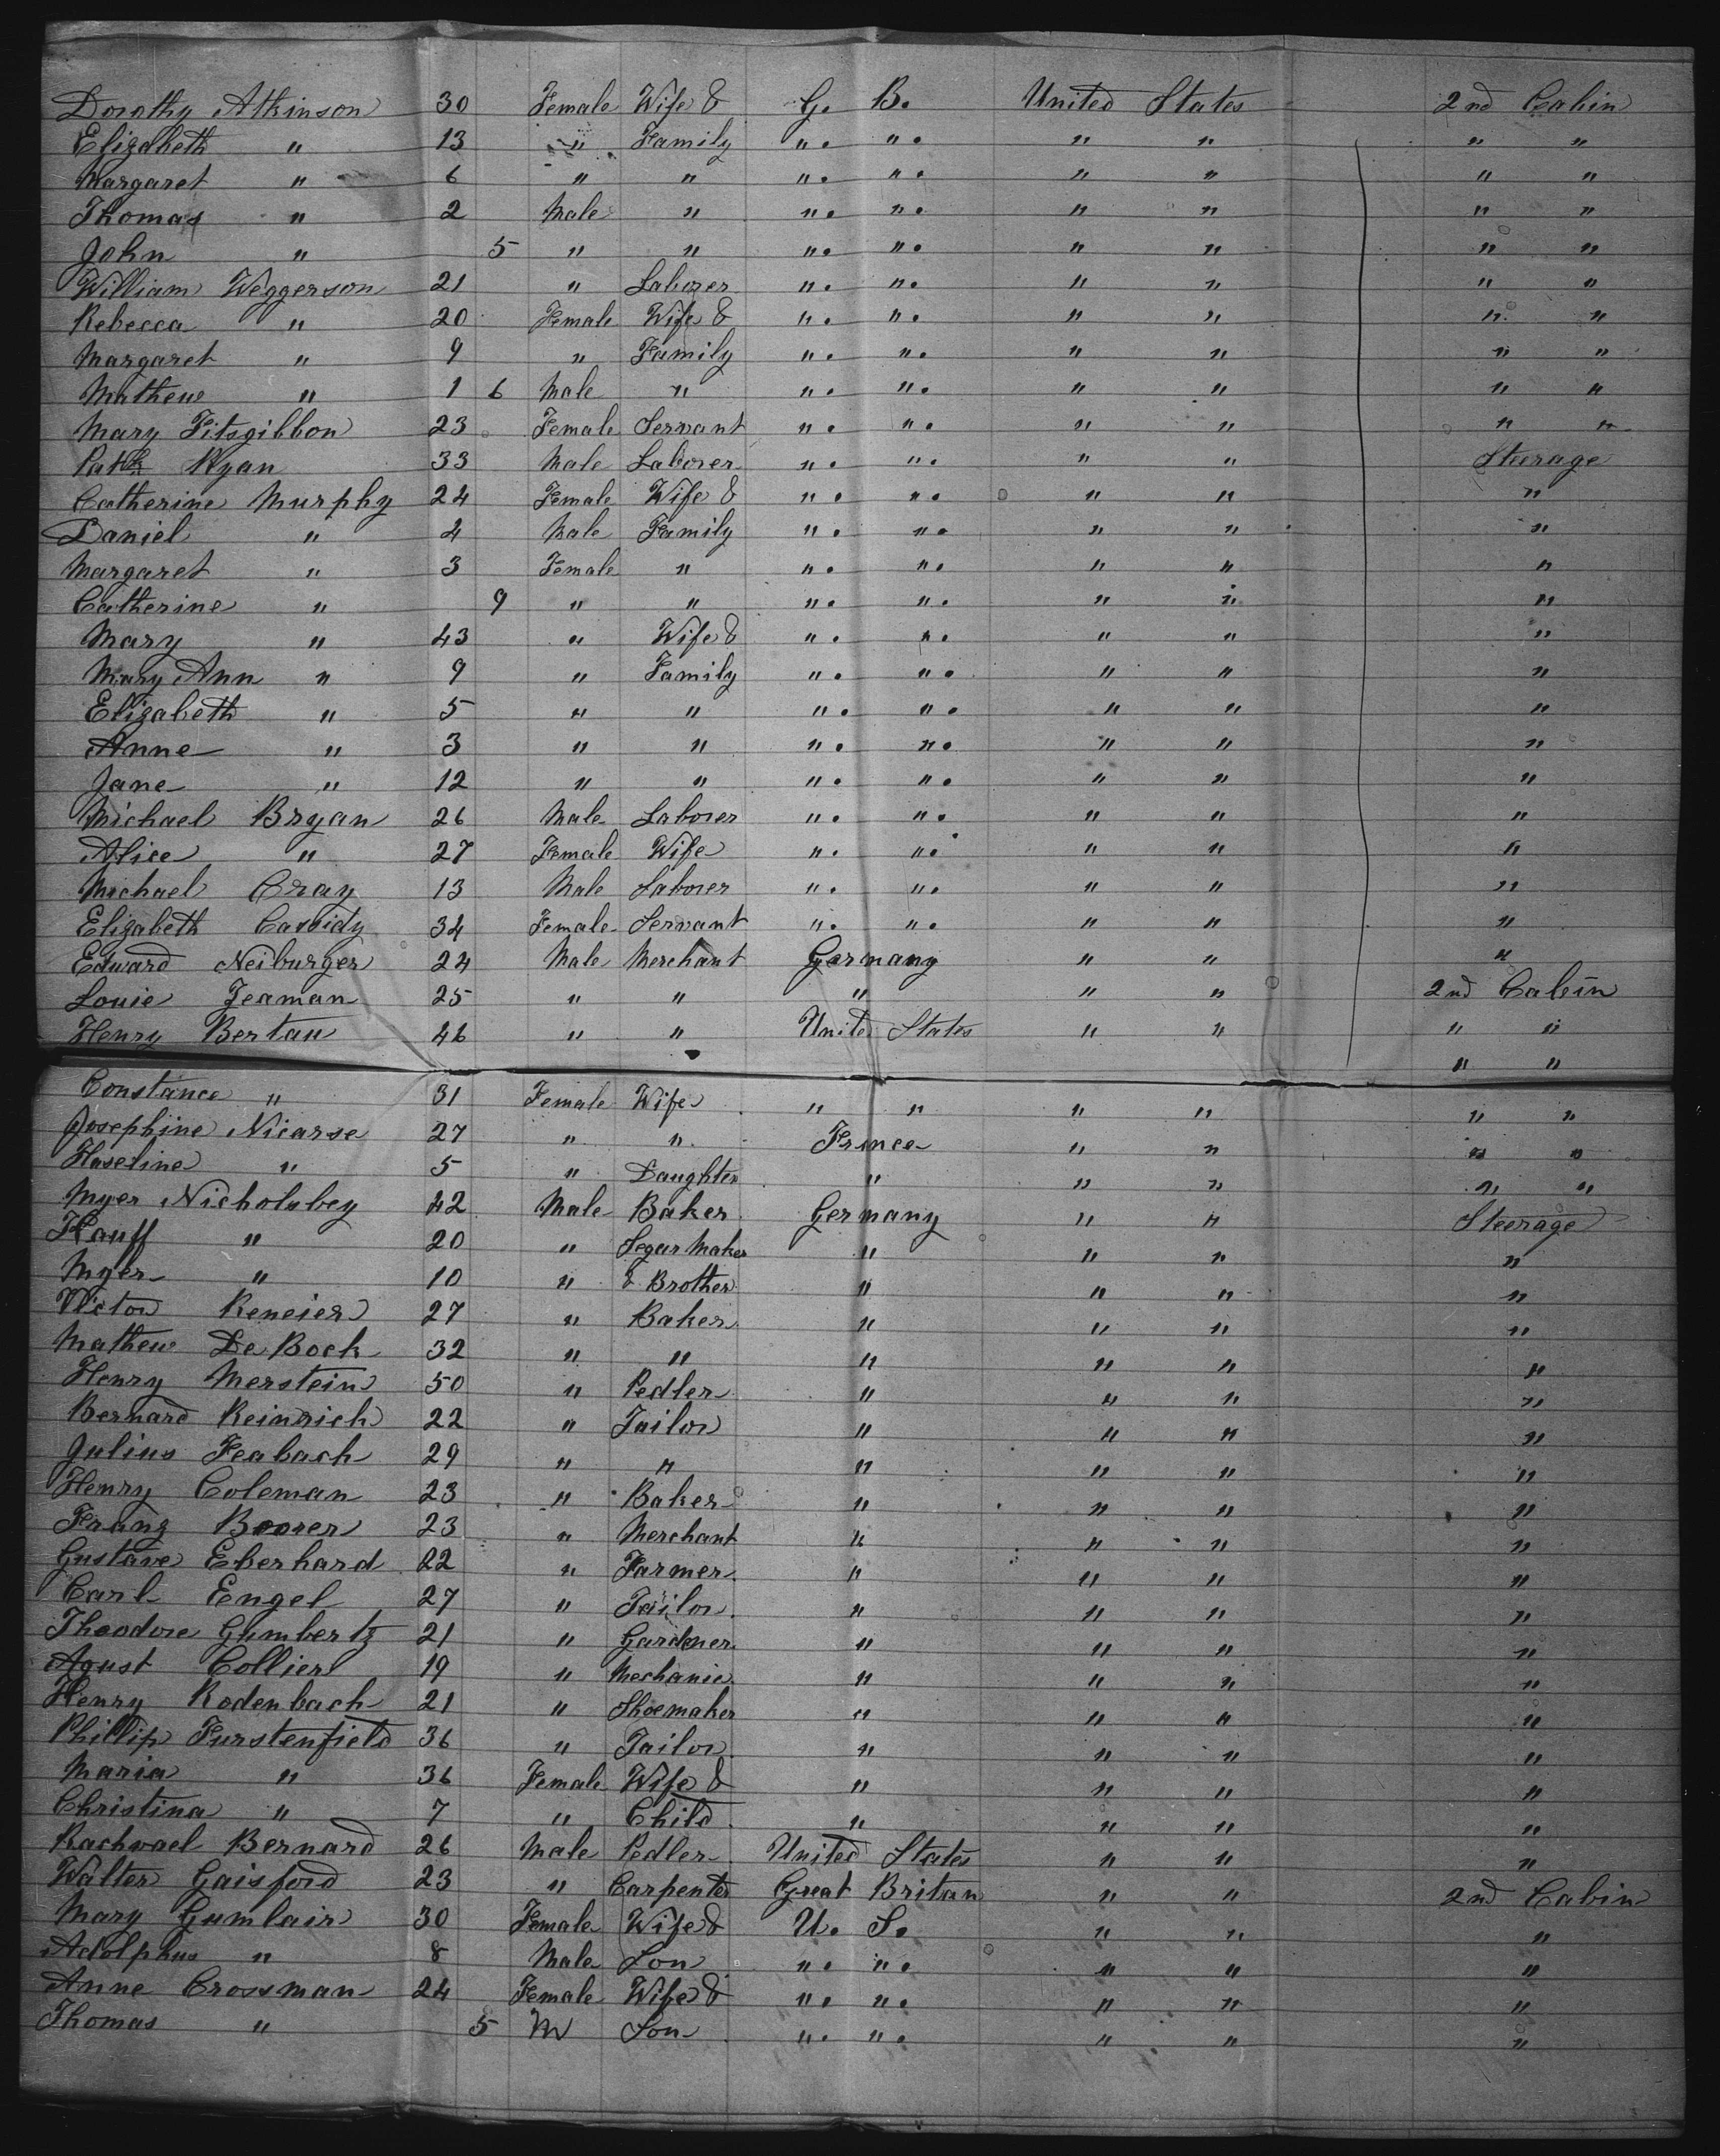 Dorothy Atkinson 30 Female Wife & G. B. United States 2nd Cabin
Elizabeth " 13 " Family " . " . " " " "
Margaret " 6 " " " . " . " " " "
Thomas " 2 Male " " . " . " " " "
John " 5 " " " . " . " " " "
William Weggerson 21 " Laborer " . " . " " " "
Rebecca " 20 Female Wife & " . " . " " " "
Margaret " 9 " Family " . " . " " " "
Mathew " 1 6 Male " " . " . " " " "
Mary Fitsgibbon 23 Female Servant " . " . " " " "
Patk Ryan 33 Male Laborer " . " . " " Steerage
Catherine Murphy 24 Female Wife & " . " . " " "
Daniel " 4 Male Family " . " . " " "
Margaret " 3 Female " " . " . " " "
Catherine " 9 " " " . " . " " "
Mary " 43 " Wife & " . " . " " "
Mary Ann " 9 " Family " . " . " " "
Elizabeth " 5 " " " . " . " " "
Anne " 3 " " " . " . " " "
Jane " 12 " " " . " . " " "
Michael Bryan 26 Male Laborer " . " . " " "
Alice " 27 Female Wife " . " . " " "
Michael Cray 13 Male Laborer " . " . " " "
Elizabeth Cassidy 34 Female Servant " . " . " " "
Edward Neiburger 24 Male Merchant Germany " " "
Louie Jeaman 25 " " " " " 2nd Cabin
Henry Bertau 46 " " United States " " " "
" "
Constance " 31 Female Wife " " " " " "
Josephine Nicarse 27 " " France " " " "
Haseline " 5 " Daughter " " " " "
Myer Nicholsbey 42 Male Baker Germany " " Steerage
Hauff " 20 " Segar Maker " " " "
Myer " 10 " & Brother " " " "
Victor Reneier 27 " Baker " " " "
Mathew De Bock 32 " " " " " "
Henry Merstein 50 " Pedler " " " "
Bernard Reinrich 22 " Tailor " " " "
Julius Feabach 29 " " " " " "
Henry Coleman 23 " Baker " " " "
Franz Boorer 23 " Merchant " " " "
Gustave Eberhard 22 " Farmer " " " "
Carl Engel 27 " Tailor " " " "
Theodore Gumbertz 21 " Gardener " " " "
Agust Collier 19 " Mechanic " " " "
Henry Rodenbach 21 " Shoemaker " " " "
Phillip Furstenfield 36 " Tailor " " " "
Maria " 36 Female Wife & " " " "
Christina " 7 " Child " " " "
Rachvael Bernard 26 Male Pedler United States " " "
Walter Gaisford 23 " Carpenter Great Britan " " 2nd Cabin
Mary Gumlair 30 Female Wife & U. S. " " "
Adolphus " 8 Male Son " . " . " " "
Anne Crossman 24 Female Wife & " . " . " " "
Thomas " 5 M Son " . " . " " "